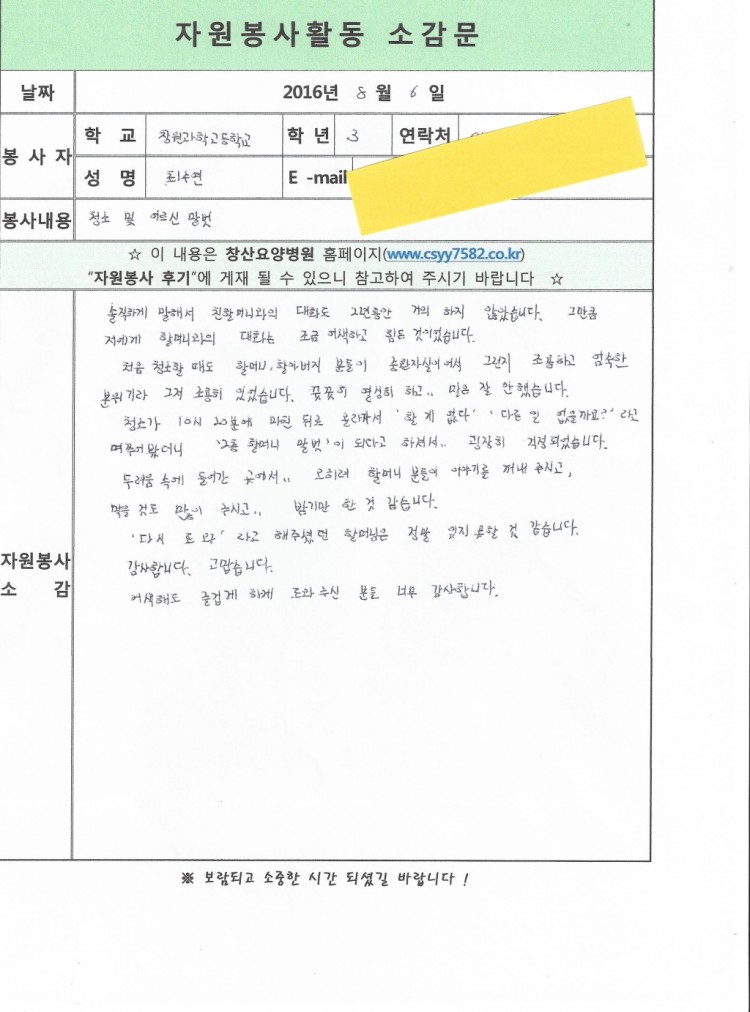 자원봉사활동 소감문
날짜 2016년 8 월 6 일
봉 사 자
학 교 창원과학고등학교 학 년 3 연락처
성 명 최수연 E -mail
봉사내용 청소 및 어르신 말벗
☆ 이 내용은 창산요양병원 홈페이지(www.csyy7582.co.kr)
“자원봉사 후기”에 게재 될 수 있으니 참고하여 주시기 바랍니다 ☆
자원봉사
소 감
솔직하게 말해서 친할머니와의 대화도 2년동안 거의 하지 않았습니다. 그만큼
저에게 할머니와의 대화는 조금 어색하고 힘든 것이었습니다.
처음 청소할 때도 할머니, 할아버지 분들이 중환자실이어서 그런지 조용하고 엄숙한
분위기라 그저 조용히 있었습니다. 꿋꿋히 열심히 하고.. 말은 잘 안했습니다.
청소가 10시 20분에 마친 뒤로 올라가서 '할 게 없다' '다른 일 없을까요?' 라고
여쭈어 봤더니 '2층 할머니 말벗'이 되라고 하셔서.. 굉장히 걱정되었습니다.
두려움 속에 들어간 곳에서.. 오히려 할머니 분들이 이야기를 꺼내 주시고,
먹을 것도 많이 주시고.. 밝기만 한 것 같습니다.
'다시 또 와' 라고 해주셨던 할머님은 정말 잊지 못할 것 같습니다.
감사합니다. 고맙습니다.
어색해도 즐겁게 하게 도와 주신 분들 너무 감사합니다.
※ 보람되고 소중한 시간 되셨길 바랍니다 !